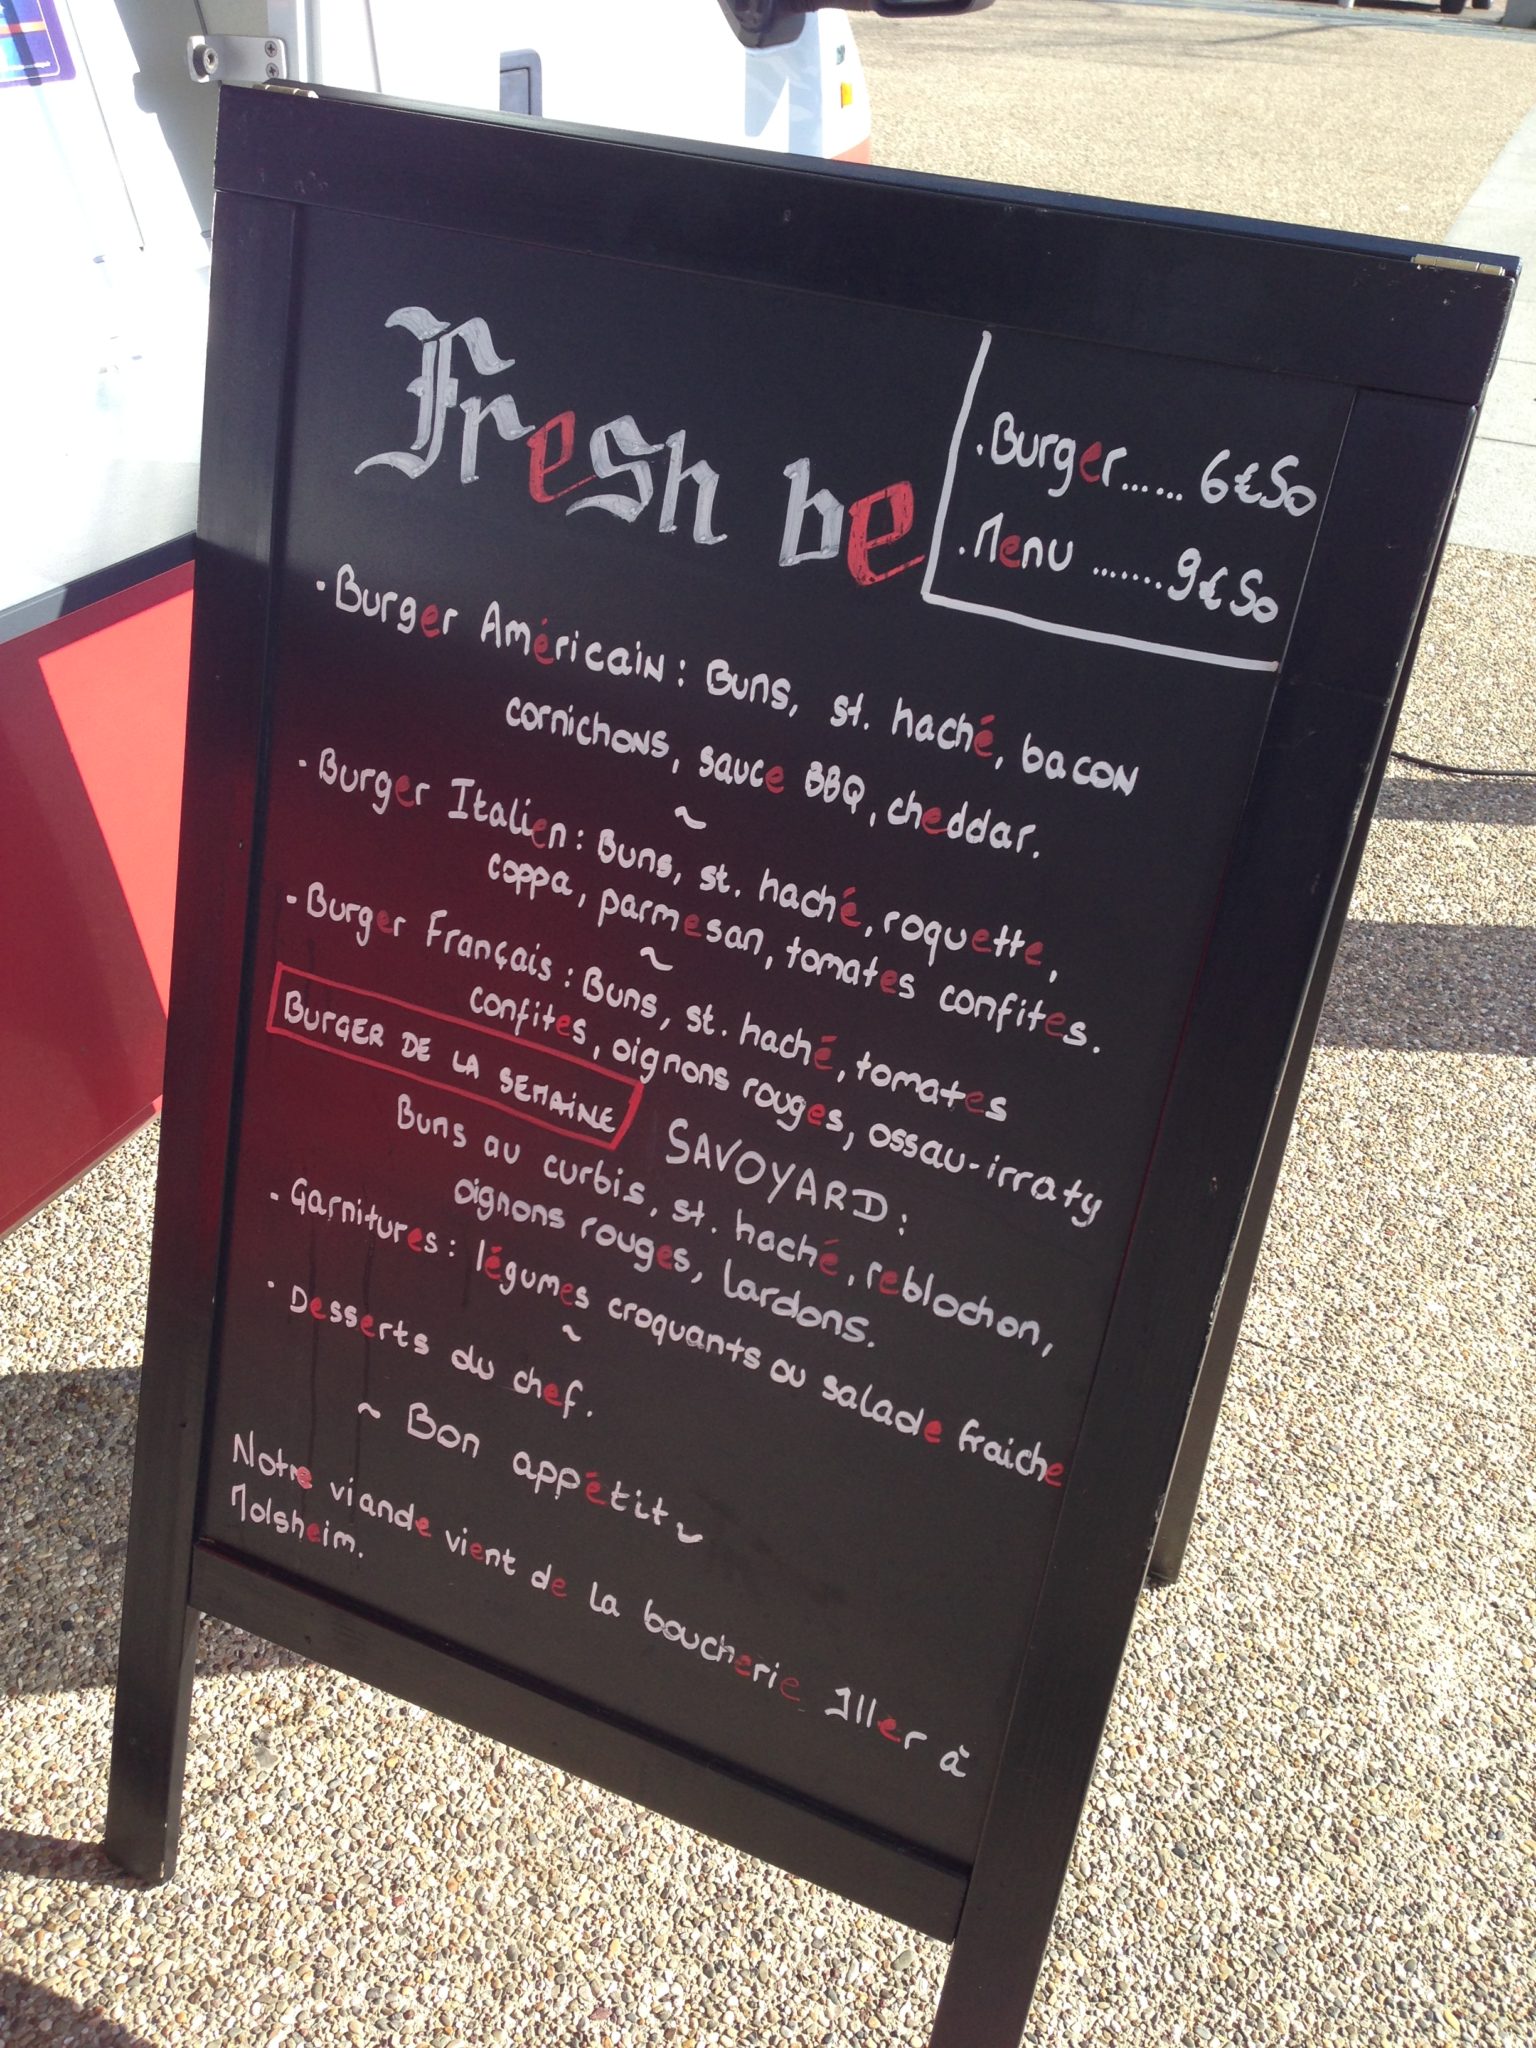 Fresh be
.Burger...... 6€50
.Menu .......9€50
- Burger Américain : Buns, st. haché, bacon
cornichons, sauce BBQ, cheddar.
~
- Burger Italien : Buns, st. haché, roquette,
coppa, parmesan, tomates confites.
~
- Burger Français : Buns, st. haché, tomates
confites, oignons rouges, ossau-irraty
BURGER DE LA SEMAINE
SAVOYARD :
Buns au curbis, st. haché, reblochon,
oignons rouges, lardons.
- Garnitures : légumes croquants ou salade fraiche
~
- Desserts du chef.
~ Bon appétit ~
Notre viande vient de la boucherie Iller à
Molsheim.